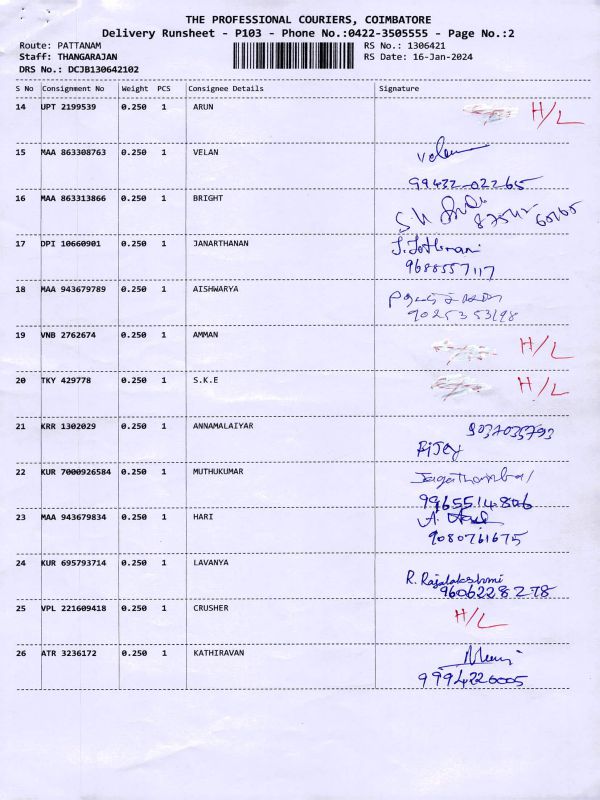 THE PROFESSIONAL COURIERS, COIMBATORE
Delivery Runsheet - P103 - Phone No.:0422-3505555 - Page No.:2
Route: PATTANAM RS No.: 1306421
Staff: THANGARAJAN RS Date: 16-Jan-2024
DRS No.: DCJB130642102
S No Consignment No Weight PCS Consignee Details Signature
14 UPT 2199539 0.250 1 ARUN H/L
15 MAA 863308763 0.250 1 VELAN Velan
99432-02265
16 MAA 863313866 0.250 1 BRIGHT
17 DPI 10660901 0.250 1 JANARTHANAN J. Jothimani
9688557117
18 MAA 943679789 0.250 1 AISHWARYA
9025353198
19 VNB 2762674 0.250 1 AMMAN H/L
20 TKY 429778 0.250 1 S.K.E H/L
21 KRR 1302029 0.250 1 ANNAMALAIYAR
22 KUR 7000926584 0.250 1 MUTHUKUMAR Jagathambal
9965514806
23 MAA 943679834 0.250 1 HARI
9080761675
24 KUR 695793714 0.250 1 LAVANYA R. Rajalakshmi
9606228278
25 VPL 221609418 0.250 1 CRUSHER H/L
26 ATR 3236172 0.250 1 KATHIRAVAN
9994226005